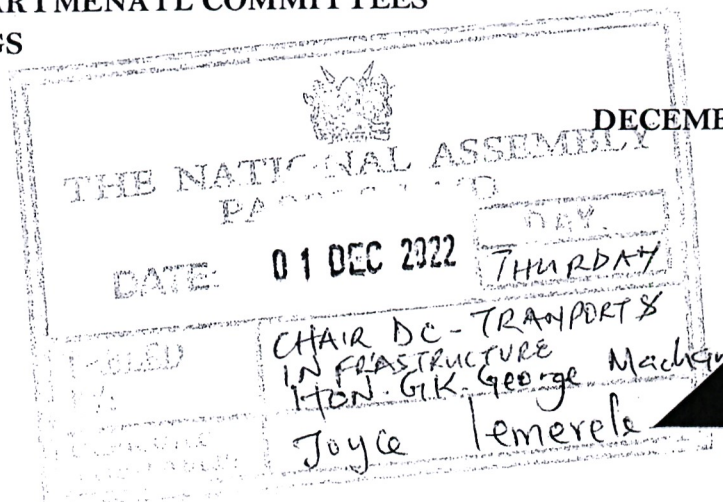 DEPARTMENATL COMMITTEES
GS
DECEMBE
THE NATIONAL ASSEMBLY
PAPERS LAID
DATE: 01 DEC 2022
DAY.
THURDAY
TABLED
BY:
CHAIR DC - TRANPORT &
INFRASTRUCTURE
HON. G.K. George Macha
Joyce Lemerele